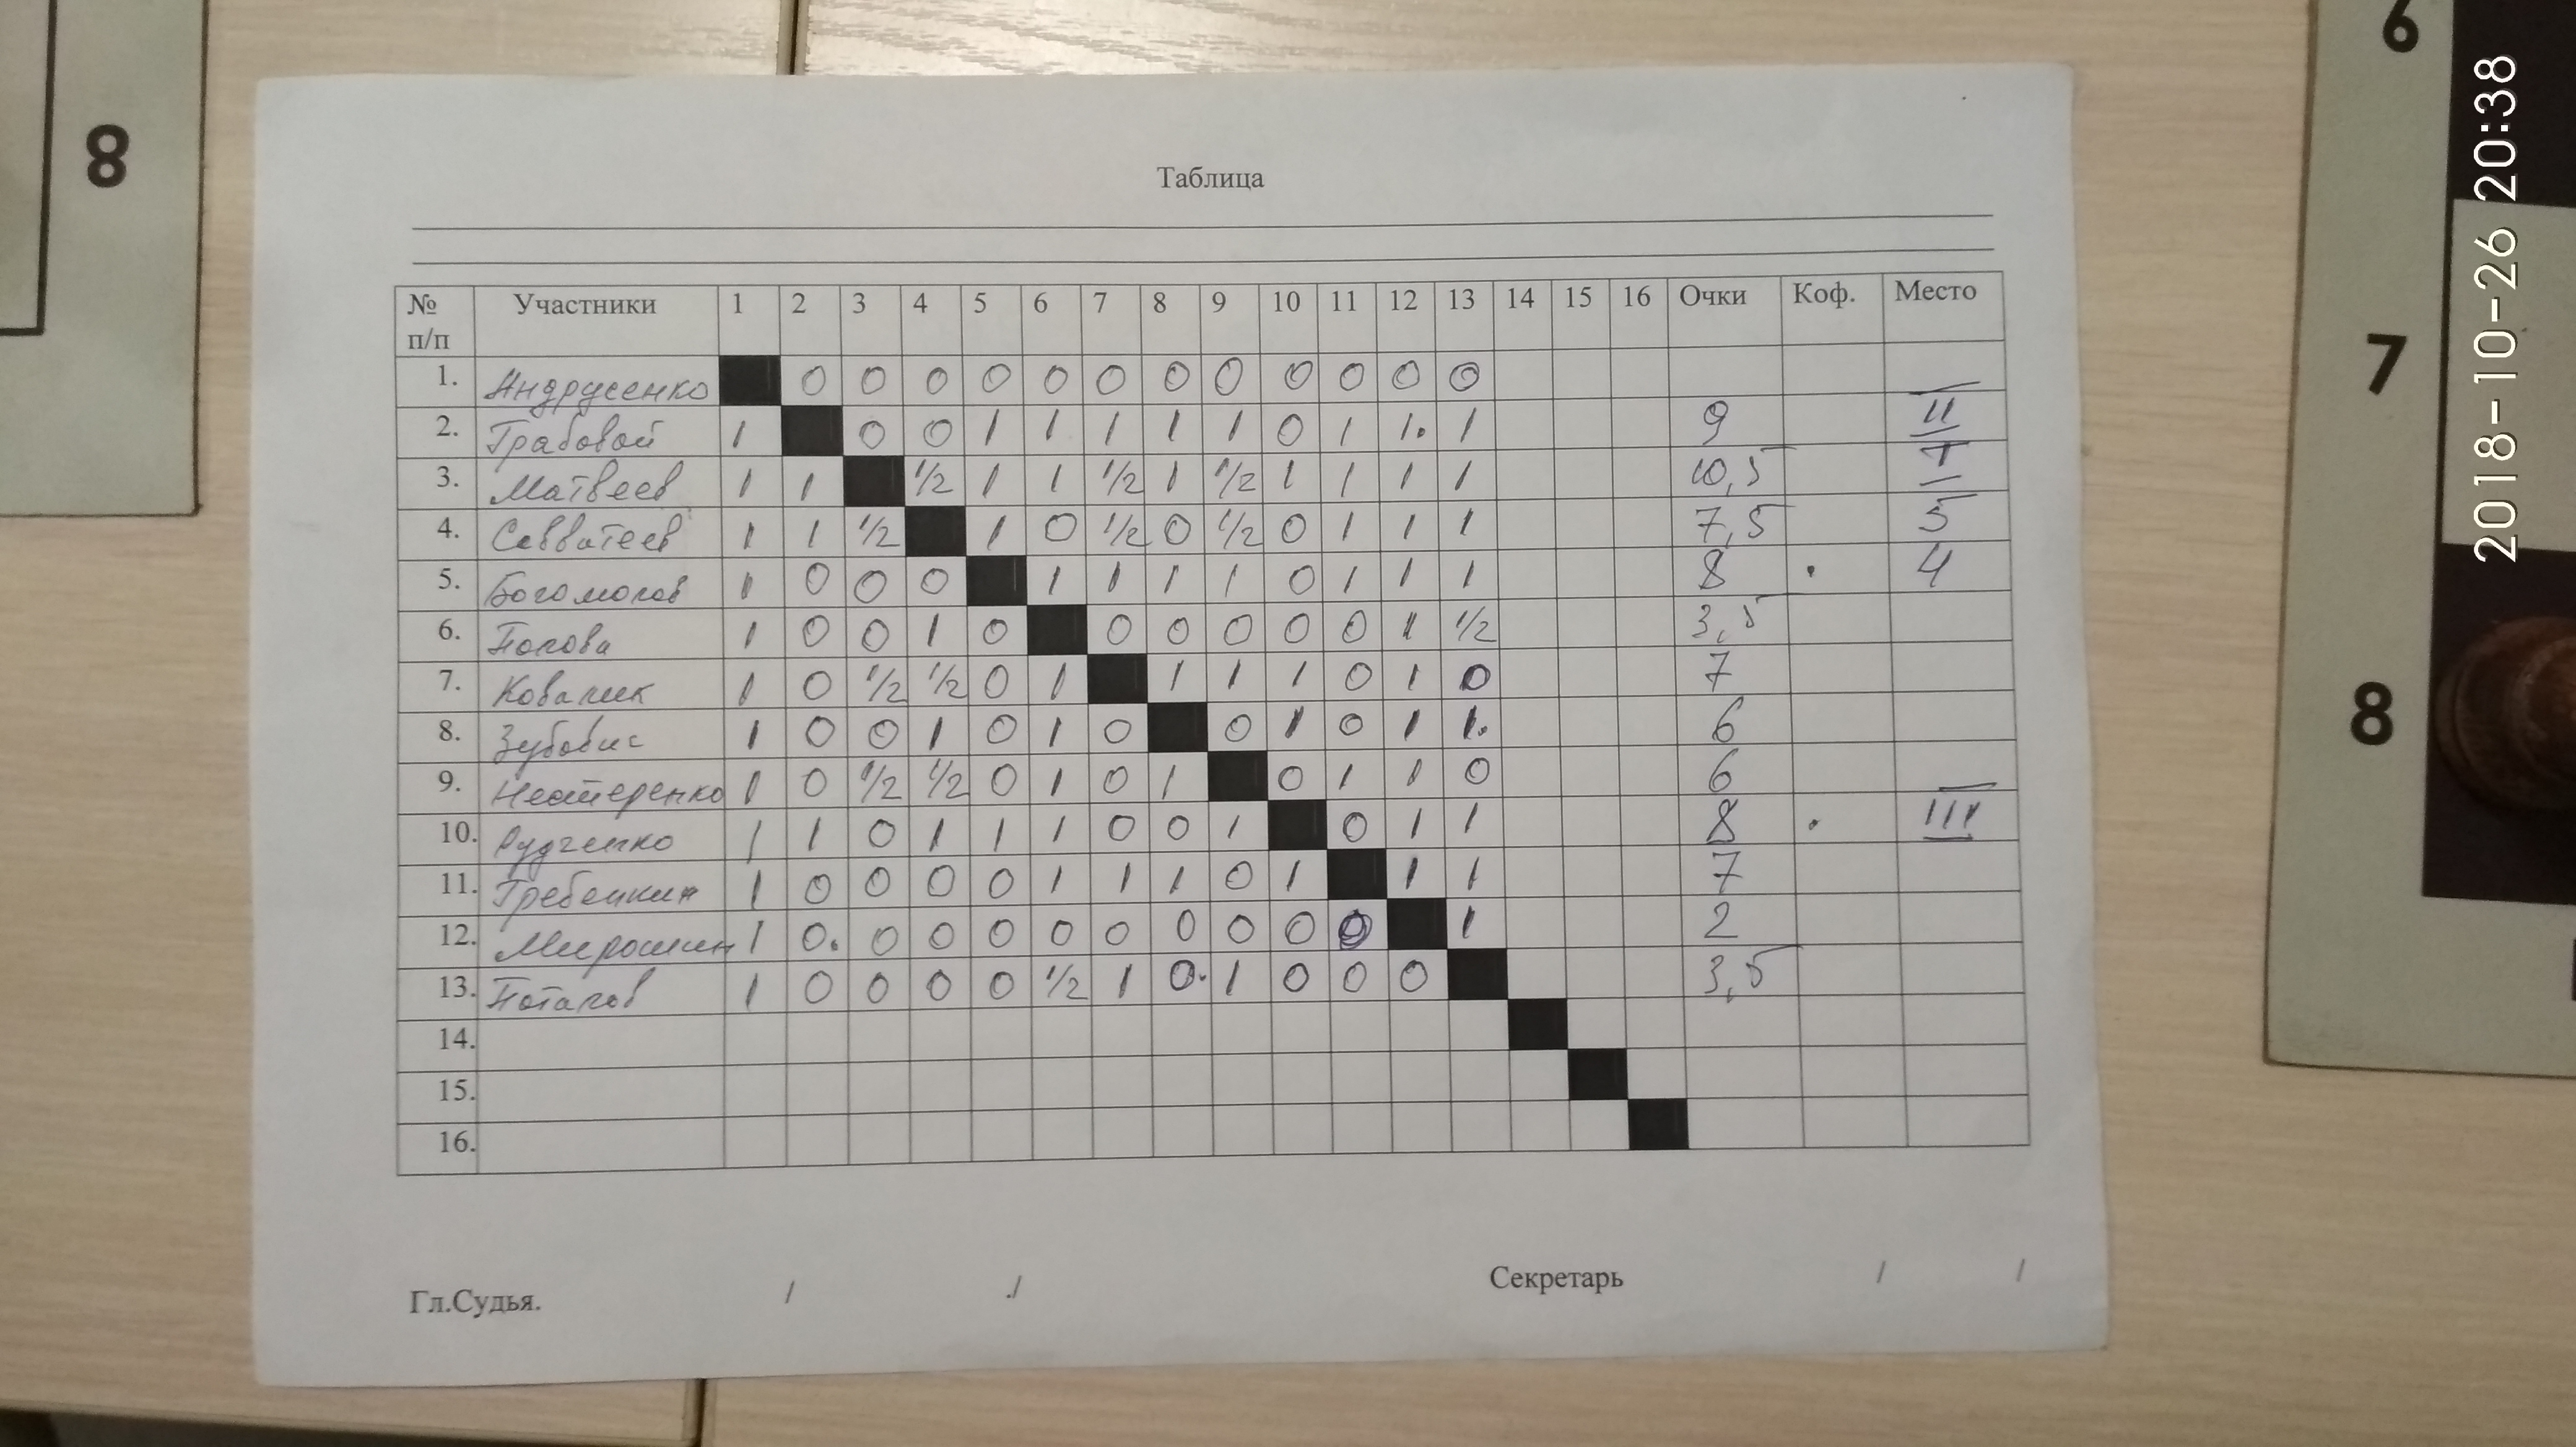 8
6
7
8
2018-10-26 20:38
Таблица
№ п/п Участники 1 2 3 4 5 6 7 8 9 10 11 12 13 14 15 16 Очки Коф. Место
1. Андрусенко 0 0 0 0 0 0 0 0 0 0 0 0
2. Грабовой 1 0 0 1 1 1 1 1 0 1 1. 1 9 II
3. Матвеев 1 1 1/2 1 1 1/2 1 1/2 1 1 1 1 10,5 I
4. Савватеев 1 1 1/2 1 0 1/2 0 1/2 0 1 1 1 7,5 5
5. Богомолов 1 0 0 0 1 1 1 1 0 1 1 1 8 . 4
6. Попова 1 0 0 1 0 0 0 0 0 0 1 1/2 3,5
7. Ковалик 1 0 1/2 1/2 0 1 1 1 1 0 1 0 7
8. Зубовис 1 0 0 1 0 1 0 0 1 0 1 1. 6
9. Нестеренко 1 0 1/2 1/2 0 1 0 1 0 1 1 0 6
10. Рудченко 1 1 0 1 1 1 0 0 1 0 1 1 8 . III
11. Гребенкин 1 0 0 0 0 1 1 1 0 1 1 1 7
12. Мирошин 1 0. 0 0 0 0 0 0 0 0 0 1 2
13. Потапов 1 0 0 0 0 1/2 1 0. 1 0 0 0 3,5
14.
15.
16.
Гл.Судья. / ./ Секретарь / /